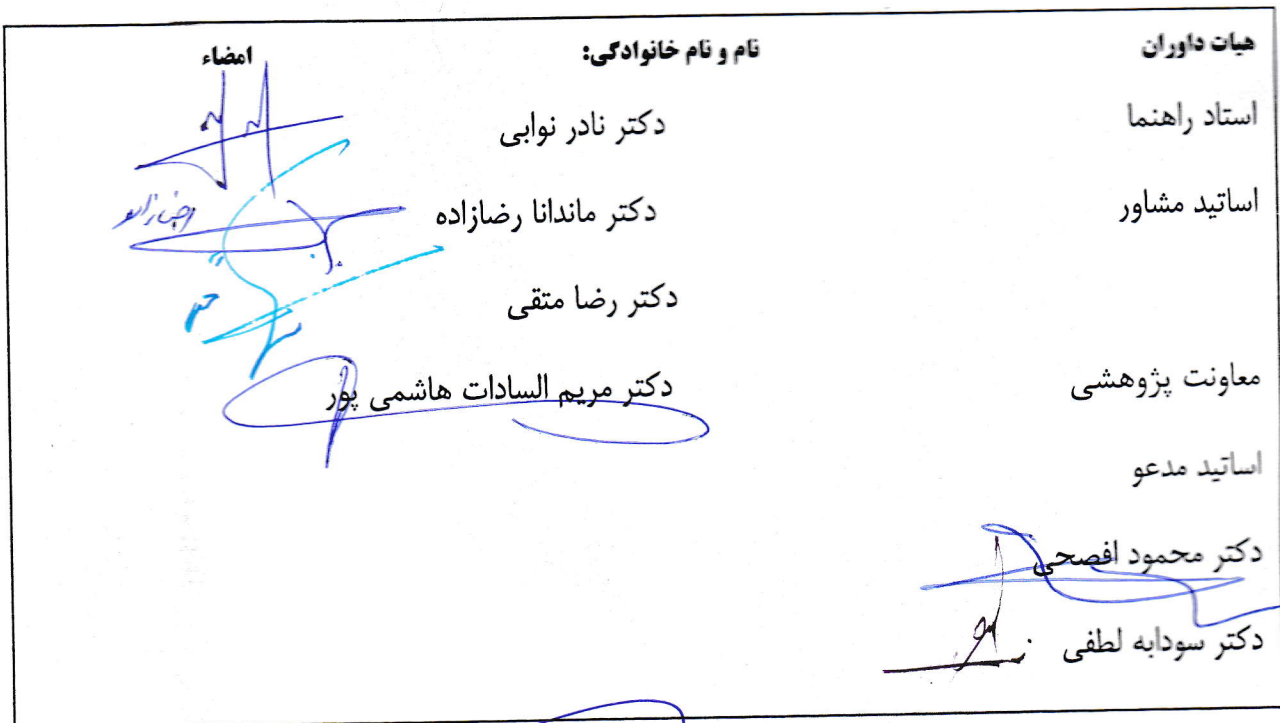 هیات داوران نام و نام خانوادگی: امضاء
استاد راهنما دکتر نادر نوابی
اساتید مشاور دکتر ماندانا رضازاده
دکتر رضا متقی
معاونت پژوهشی دکتر مریم السادات هاشمی پور
اساتید مدعو
دکتر محمود افصحی
دکتر سودابه لطفی